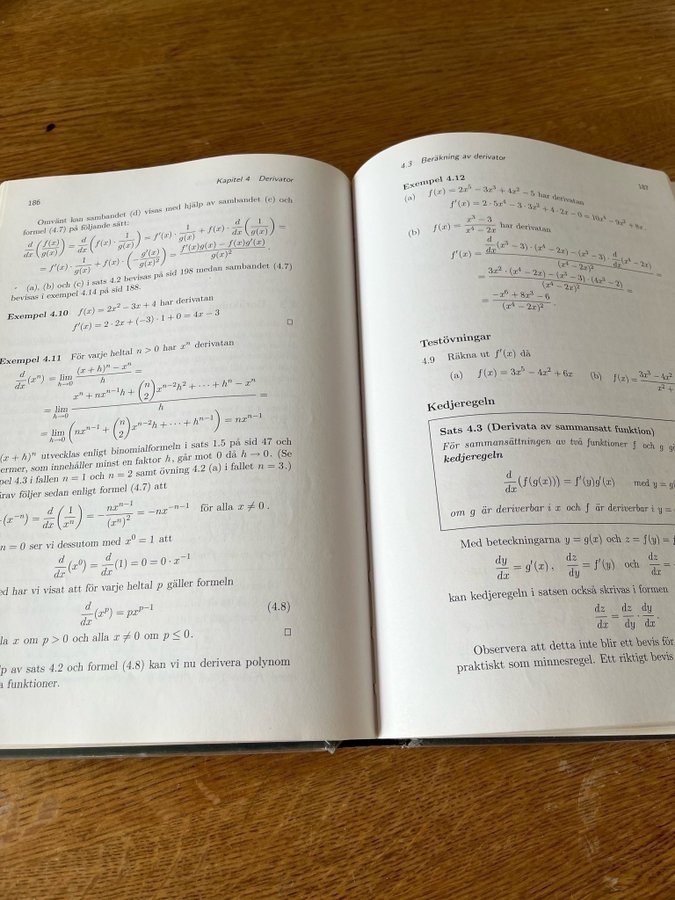 186
Kapitel 4 Derivator
Omvänt kan sambandet (d) visas med hjälp av sambandet (c) och
formel (4.7) på följande sätt:
d/dx (f(x)/g(x)) = d/dx (f(x) · 1/g(x)) = f′(x) · 1/g(x) + f(x) · d/dx (1/g(x)) =
= f′(x) · 1/g(x) + f(x) · (−g′(x)/g(x)²) = (f′(x)g(x) − f(x)g′(x))/g(x)².
(a), (b) och (c) i sats 4.2 bevisas på sid 198 medan sambandet (4.7)
bevisas i exempel 4.14 på sid 188.
Exempel 4.10 f(x) = 2x² − 3x + 4 har derivatan
f′(x) = 2 · 2x + (−3) · 1 + 0 = 4x − 3 □
Exempel 4.11 För varje heltal n > 0 har xⁿ derivatan
d/dx (xⁿ) = lim h→0 ((x + h)ⁿ − xⁿ)/h =
= lim h→0 (xⁿ + nxⁿ⁻¹h + (n 2)xⁿ⁻²h² + · · · + hⁿ − xⁿ)/h =
= lim h→0 (nxⁿ⁻¹ + (n 2)xⁿ⁻²h + · · · + hⁿ⁻¹) = nxⁿ⁻¹
(x + h)ⁿ utvecklas enligt binomialformeln i sats 1.5 på sid 47 och
ermer, som innehåller minst en faktor h, går mot 0 då h → 0. (Se
pel 4.3 i fallen n = 1 och n = 2 samt övning 4.2 (a) i fallet n = 3.)
ärav följer sedan enligt formel (4.7) att
(x⁻ⁿ) = d/dx (1/xⁿ) = −nxⁿ⁻¹/(xⁿ)² = −nx⁻ⁿ⁻¹ för alla x ≠ 0.
n = 0 ser vi dessutom med x⁰ = 1 att
d/dx (x⁰) = d/dx (1) = 0 = 0 · x⁻¹
ed har vi visat att för varje heltal p gäller formeln
d/dx (xᵖ) = pxᵖ⁻¹ (4.8)
la x om p > 0 och alla x ≠ 0 om p ≤ 0. □
lp av sats 4.2 och formel (4.8) kan vi nu derivera polynom
a funktioner.
4.3 Beräkning av derivator
187
Exempel 4.12
(a) f(x) = 2x⁵ − 3x³ + 4x² − 5 har derivatan
f′(x) = 2 · 5x⁴ − 3 · 3x² + 4 · 2x − 0 = 10x⁴ − 9x² + 8x.
(b) f(x) = (x³ − 3)/(x⁴ − 2x) har derivatan
f′(x) = (d/dx (x³ − 3) · (x⁴ − 2x) − (x³ − 3) · d/dx (x⁴ − 2x))/(x⁴ − 2x)² =
= (3x² · (x⁴ − 2x) − (x³ − 3) · (4x³ − 2))/(x⁴ − 2x)² =
= (−x⁶ + 8x³ − 6)/(x⁴ − 2x)².
Testövningar
4.9 Räkna ut f′(x) då
(a) f(x) = 3x⁵ − 4x² + 6x (b) f(x) = (3x³ − 4x²)/(x² +
Kedjeregeln
Sats 4.3 (Derivata av sammansatt funktion)
För sammansättningen av två funktioner f och g gä
kedjeregeln
d/dx (f(g(x))) = f′(y)g′(x) med y = g(
om g är deriverbar i x och f är deriverbar i y =
Med beteckningarna y = g(x) och z = f(y) = f
dy/dx = g′(x), dz/dy = f′(y) och dz/dx =
kan kedjeregeln i satsen också skrivas i formen
dz/dx = dz/dy · dy/dx.
Observera att detta inte blir ett bevis för
praktiskt som minnesregel. Ett riktigt bevis